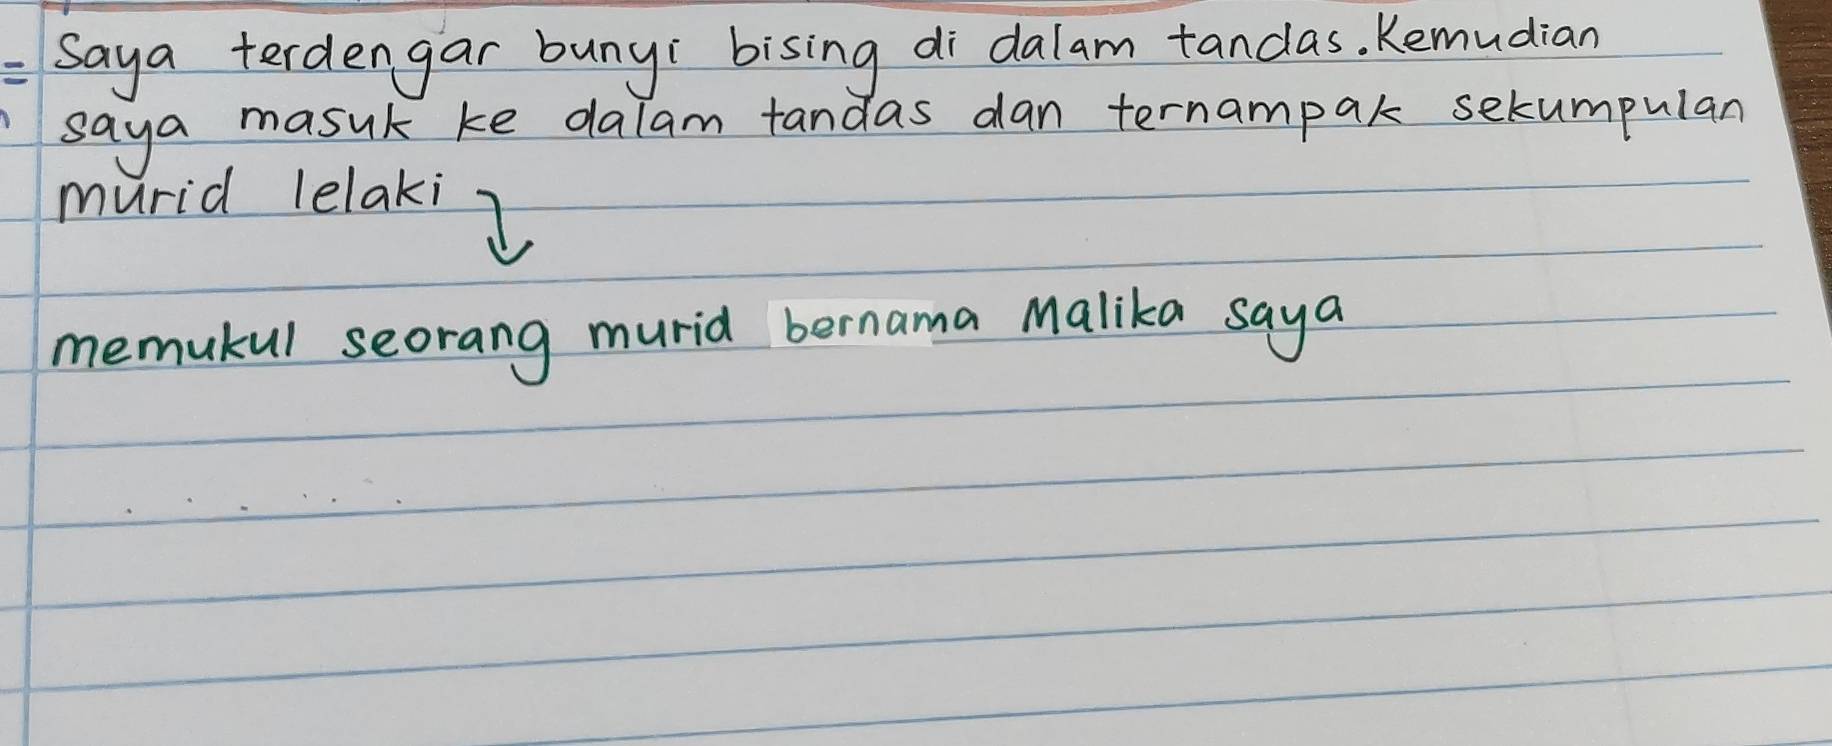 saya terdengar bunyi bising di dalam tandas. Kemudian
saya masuk ke dalam tandas dan ternampak sekumpulan
murid lelaki
memukul seorang murid bernama Malika saya